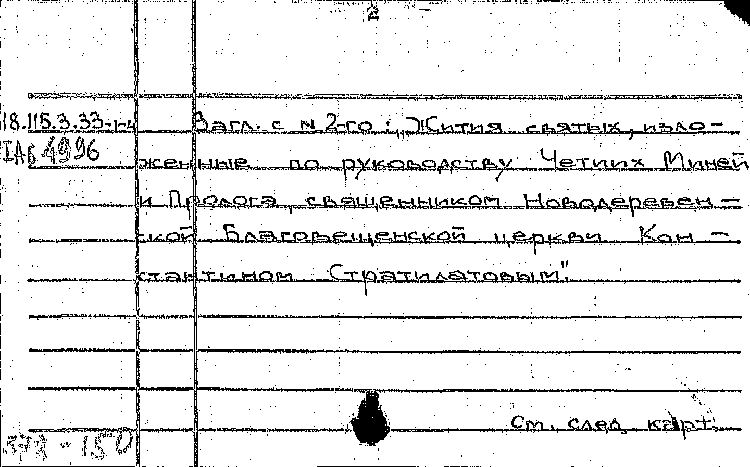 18.115.3.33-1-4 Загл. с N 2-го: „Жития святых, изло-
женные по руководству Четиих Миней
и Пролога, священником Новодеревен-
ской Благовещенской церкви Кон-
стантином Стратилатовым".
См. след. карт.
378-150